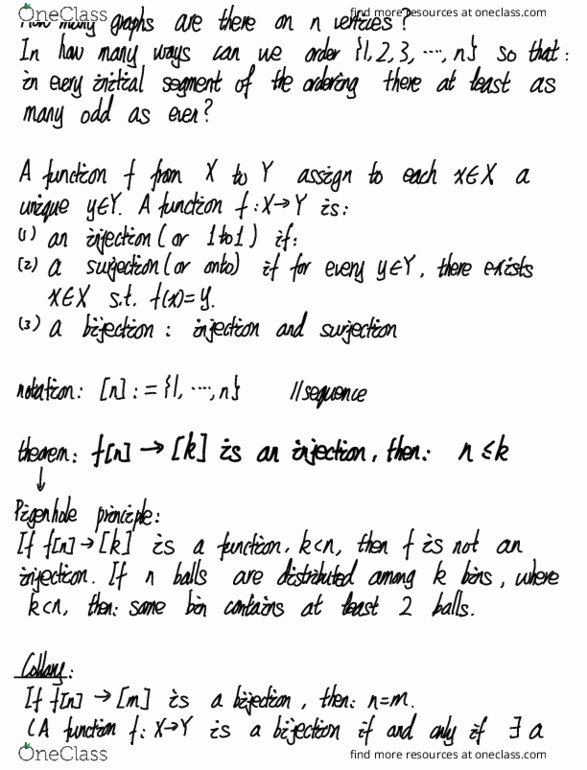 OneClass
find more resources at oneclass.com
How many graphs are there on n vertices?
In how many ways can we order {1,2,3, ..., n} so that:
in every initial segment of the ordering there at least as
many odd as even?
A function f from X to Y assign to each x∈X a
unique y∈Y. A function f:X→Y is:
(1) an injection (or 1to1) if:
(2) a surjection (or onto) if for every y∈Y, there exists
x∈X s.t. f(x)=y.
(3) a bijection: injection and surjection
notation: [n]:={1, ..., n} //sequence
theorem: f[n]→[k] is an injection, then: n≤k
↓
Pigenhole principle:
If f[n]→[k] is a function, k<n, then f is not an
injection. If n balls are distributed among k bins, where
k<n, then: some bin contains at least 2 balls.
Collary:
If f[n]→[m] is a bijection, then: n=m.
(A function f: X→Y is a bijection if and only if ∃ a
OneClass
find more resources at oneclass.com